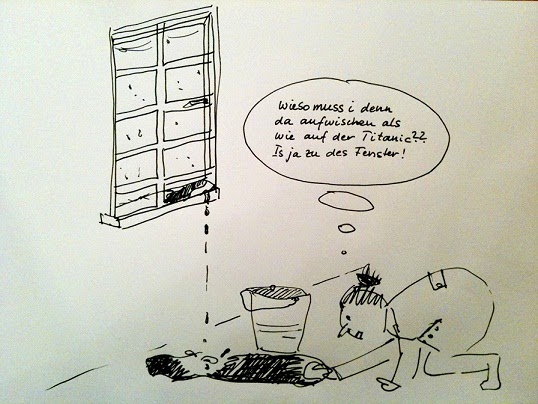 Wieso muss i denn
da aufwischen als
wie auf der Titanic??
Is ja zu des Fenster!